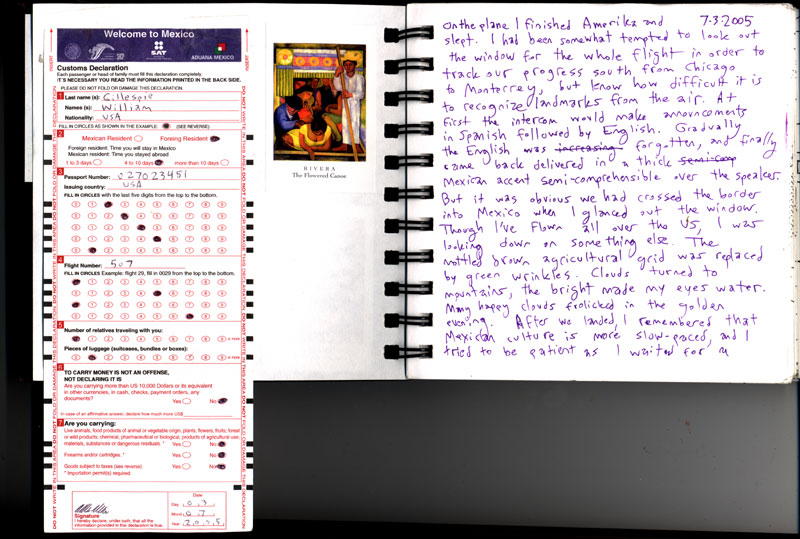 Welcome to Mexico
SAT
ADUANA MEXICO
Customs Declaration
Each passenger or head of family must fill this declaration completely.
IT'S NECESSARY YOU READ THE INFORMATION PRINTED IN THE BACK SIDE.
PLEASE DO NOT FOLD OR DAMAGE THIS DECLARATION.
1 Last name (s): Gillespie
Names (s): William
Nationality: USA
FILL IN CIRCLES AS SHOWN IN THE EXAMPLE (SEE REVERSE)
2 Mexican Resident Foreing Resident
Foreign resident: Time you will stay in Mexico
Mexican resident: Time you stayed abroad
1 to 3 days 4 to 10 days more than 10 days
3 Passport Number: 027023451
Issuing country: USA
FILL IN CIRCLES with the last five digits from the top to the bottom.
0 1 2 3 4 5 6 7 8 9
4 Flight Number: 507
FILL IN CIRCLES Example: flight 29, fill in 0029 from the top to the bottom.
5 Number of relatives traveling with you:
Pieces of luggage (suitcases, bundles or boxes):
6 TO CARRY MONEY IS NOT AN OFFENSE,
NOT DECLARING IT IS
Are you carrying more than US 10,000 Dollars or its equivalent
in other currencies, in cash, checks, payment orders, any
documents?
Yes No
In case of an affirmative answer, declare how much more US$
7 Are you carrying:
Live animals, food products of animal or vegetable origin, plants, flowers, fruits; forest
or wild products; chemical, pharmaceutical or biological, products of agricultural use;
materials, substances or dangerous residuals. *
Yes No
Firearms and/or cartridges. * Yes No
Goods subject to taxes (see reverse) Yes No
* Importation permit(s) required.
Signature
I hereby declare, under oath, that all the
information provided in this declaration is true.
Date
Day 03
Month 07
Year 2005
DO NOT WRITE IN THIS AREA DO NOT FOLD OR DAMAGE THIS DECLARATION
RIVERA
The Flowered Canoe
On the plane I finished Amerika and 7-3-2005
slept. I had been somewhat tempted to look out
the window for the whole flight in order to
track our progress south from Chicago
to Monterrey, but know how difficult it is
to recognize landmarks from the air. At
first the intercom would make annoucements
in Spanish followed by English. Gradually
the English was increasing forgotten, and finally
came back delivered in a thick semi-comp
Mexican accent semi-comprehensible over the speaker.
But it was obvious we had crossed the border
into Mexico when I glanced out the window.
Though I've flown all over the US, I was
looking down on something else. The
mottled brown agricultural grid was replaced
by green wrinkles. Clouds turned to
mountains, the bright made my eyes water.
Many happy clouds frolicked in the golden
evening. After we landed, I remembered that
Mexican culture is more slow-paced, and I
tried to be patient as I waited for m